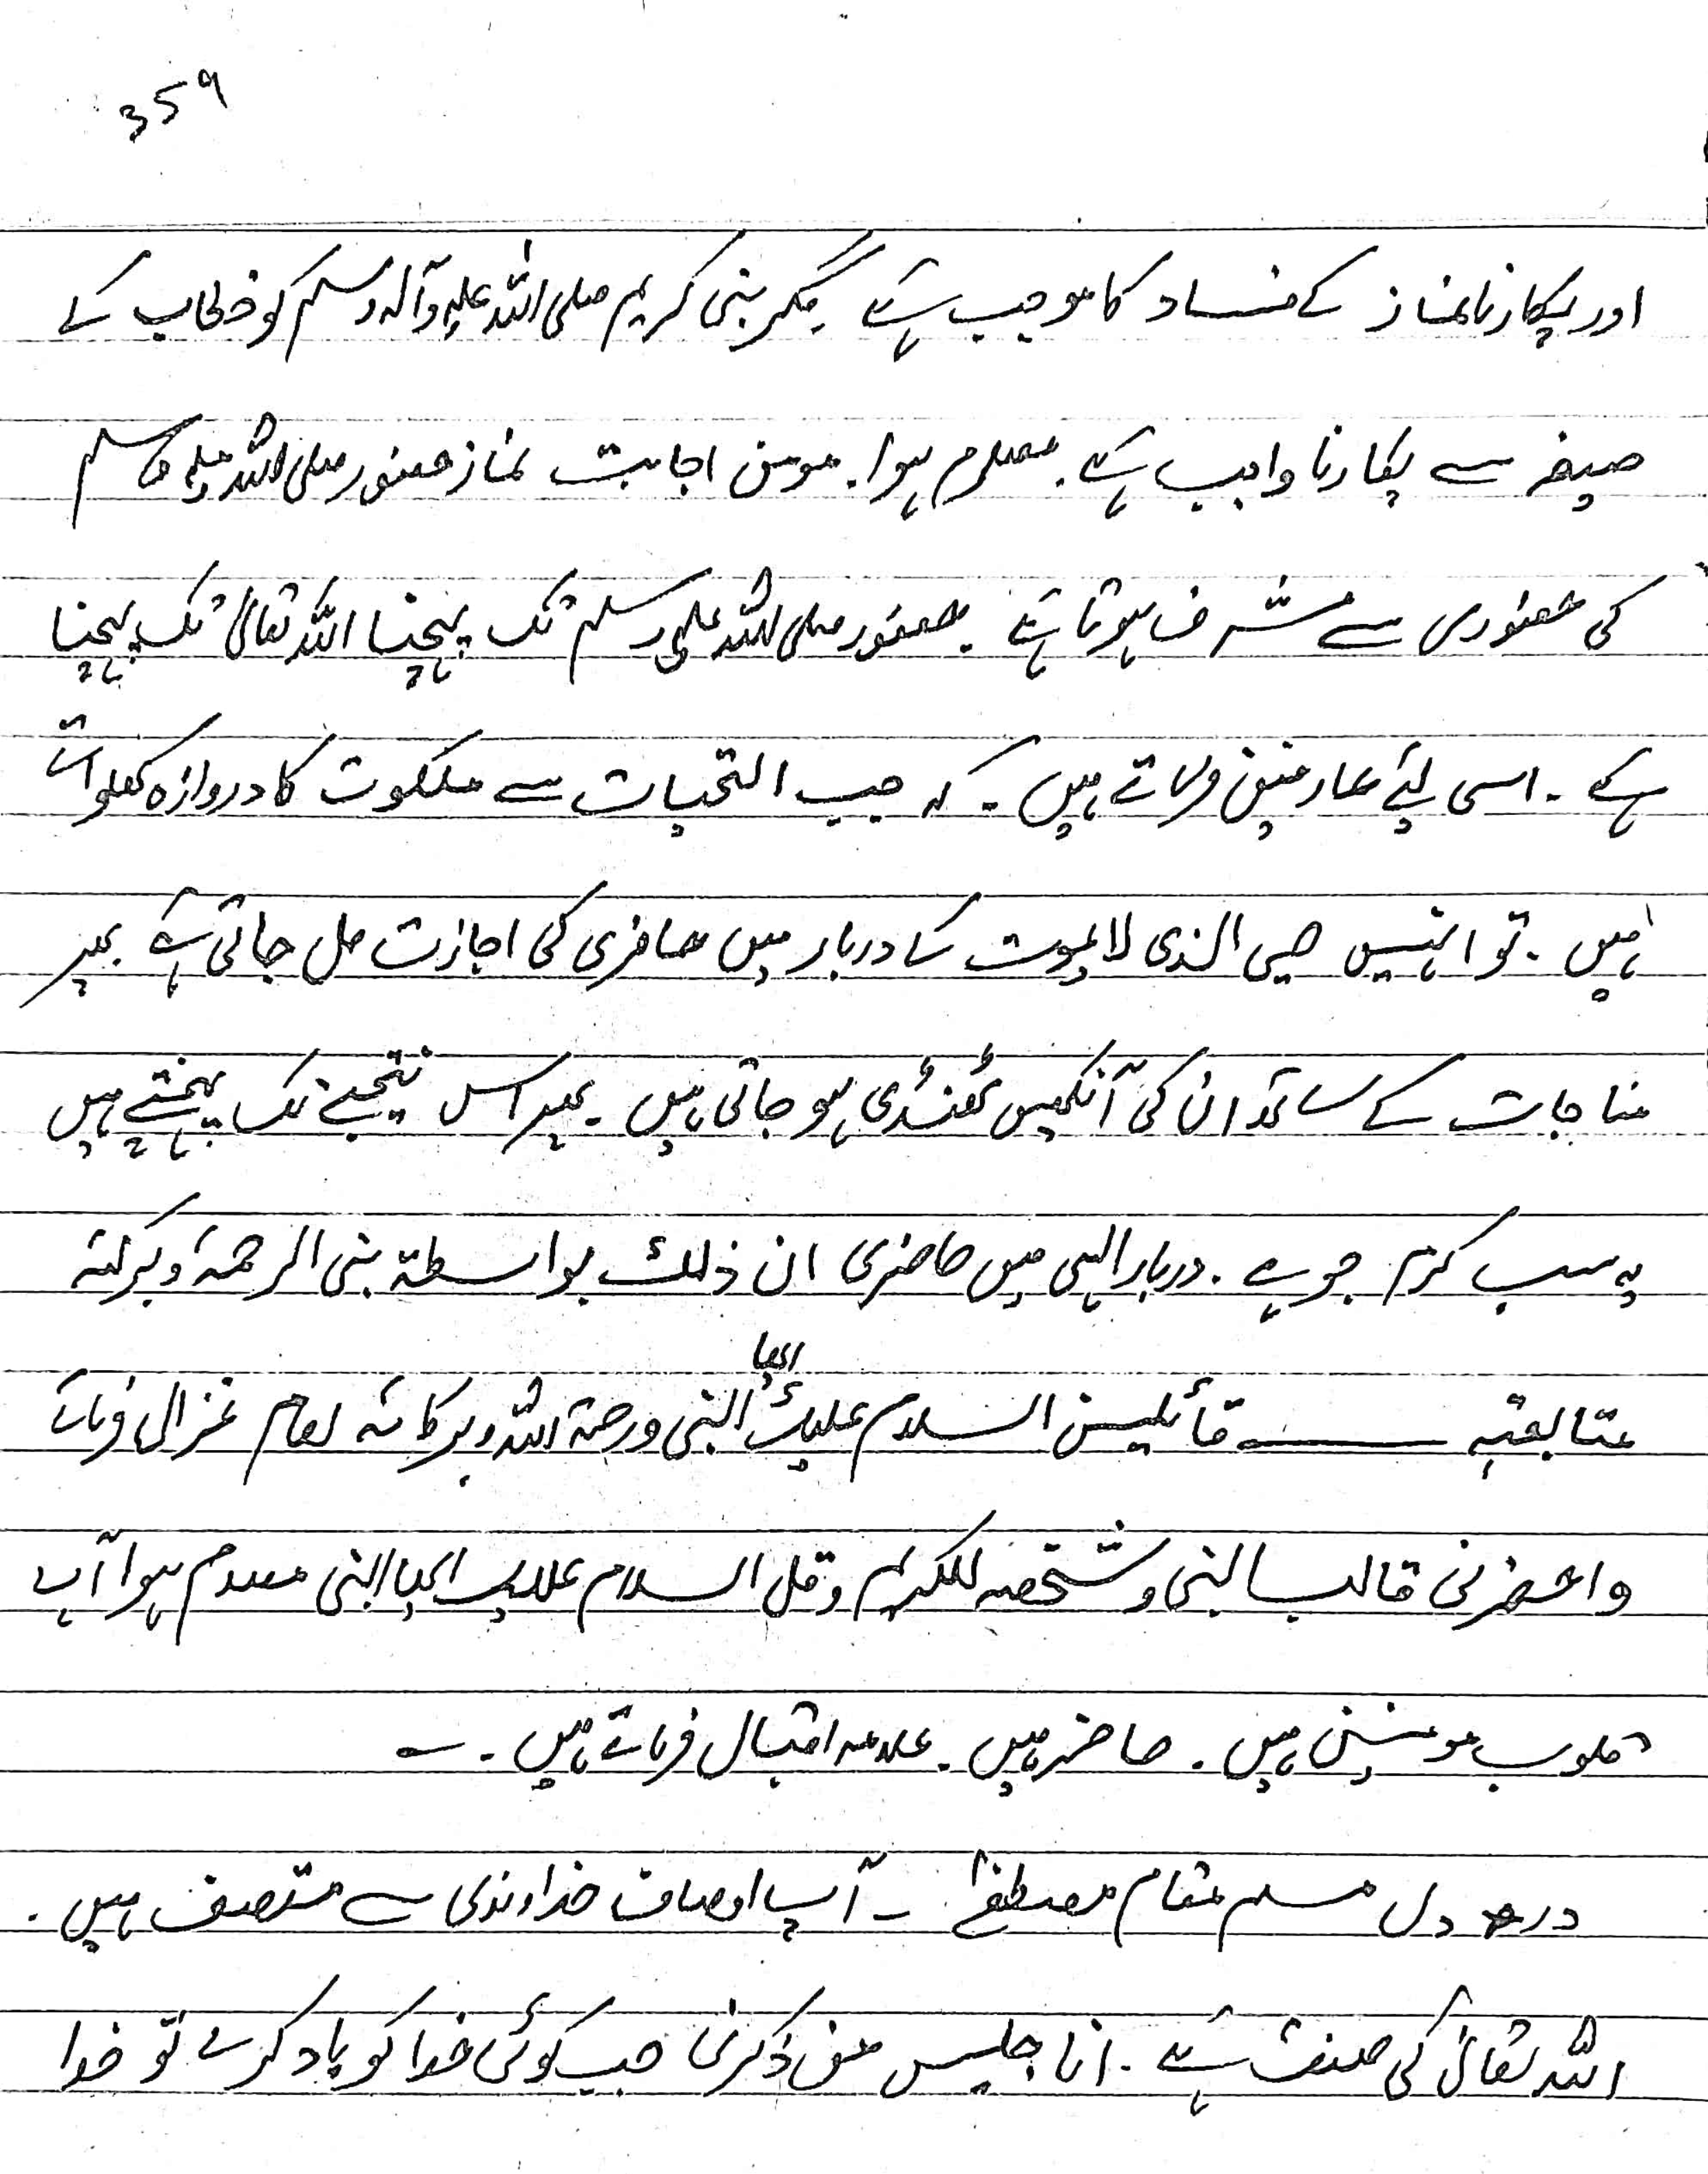 359
اور پکارنا نماز کے فساد کا موجب ہے۔ مگر نبی کریم صلی اللہ علیہ وآلہ وسلم کو خطاب کے
صیغہ سے پکارنا واجب ہے۔ معلوم ہوا۔ مومن اجابت نماز حضور صلی اللہ علیہ وسلم
کی حضوری سے مشرف ہوتا ہے۔ حضور صلی اللہ علیہ وسلم تک پہچنا اللہ تعالیٰ تک پہچنا
ہے۔ اسی لیئے عارفین فرماتے ہیں۔ کہ جب التحیات سے ملکوت کا دروازہ کھلواتے
ہیں۔ تو انہیں حیی الذی لا یموت کے دربار میں حاضری کی اجازت مل جاتی ہے۔ پھر
مناجات کے ساتھ ان کی آنکھیں ٹھنڈی ہو جاتی ہیں۔ پھر اس نتیجے تک پہنچتے ہیں
یہ سب کرم جو ہے۔ دربار الہی میں حاضری ان ذلک بواسطۃ نبی الرحمۃ وبرکتہ
متابعتہ ـــــ قائلین السلام علیک ایھا النبی ورحمۃ اللہ وبرکاتہ امام غزالی فرماتے
واحضر فی قالب النبی وشخصہ الکریم وقل السلام علیک ایھا النبی معلوم ہوا آپ
قلوب مومنین ہیں۔ حاضر ہیں۔ علامہ اقبال فرماتے ہیں۔
در دل مسلم مقام مصطفیٰؐ ۔ آپ اوصاف خداوندی سے متصف ہیں۔
اللہ تعالیٰ کی صفت ہے۔ انا جلیس من ذکرنی جب کوئی خدا کو یاد کرے تو خدا